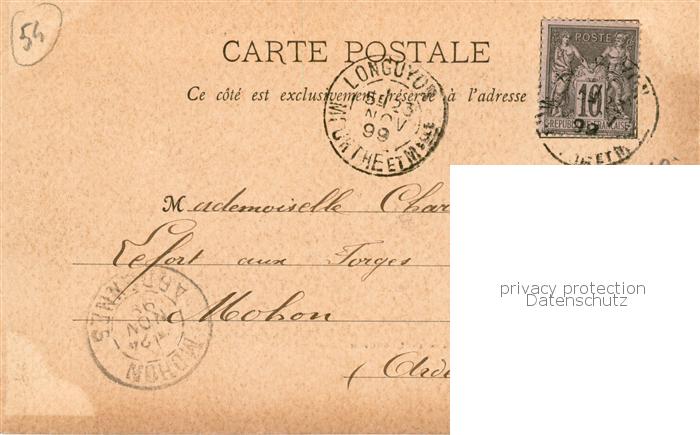 54
CARTE POSTALE
Ce côté est exclusivement réservé à l'adresse
LONGUYON
23
NOV
99
MRTHE ET MSELLE
POSTE
10
REPUBLIQUE FRANÇAISE
99
Mademoiselle Char
Lefort aux Forges
Mohon
(Arde
MOHON
ARDENNES
24
NOV
privacy protection
Datenschutz